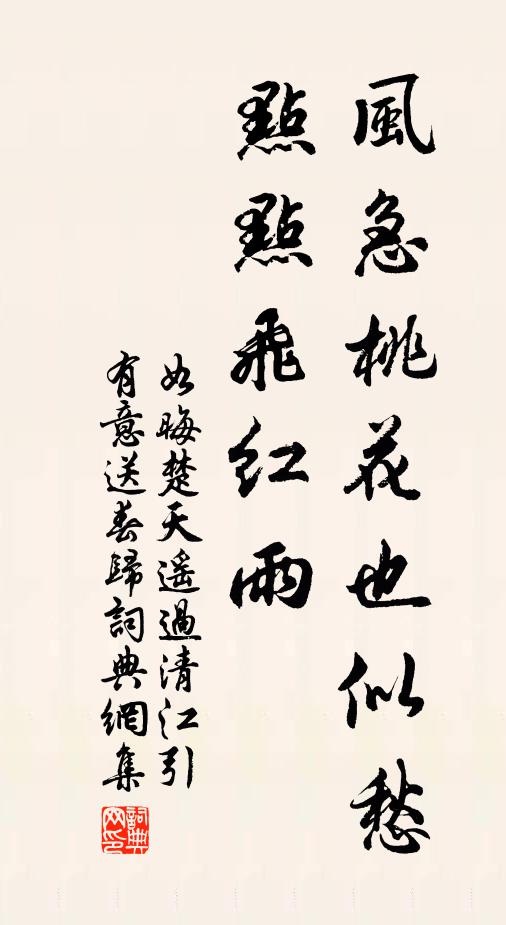 風急桃花也似愁
點點飛紅雨
如晦楚天遥過清江引
有意送春歸詞典網集
詞典
网印